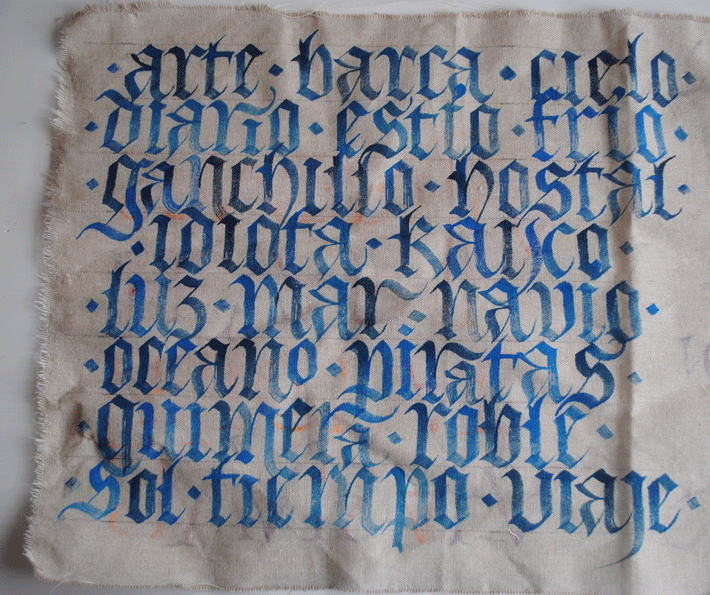 · arte · barca · cielo ·
· diario · estío · frío ·
· ganchillo · hostal ·
· idiota · kayco ·
· luz · mar · navío ·
· oceano · piratas ·
· quimera · roble ·
· sol · tiempo · viaje ·